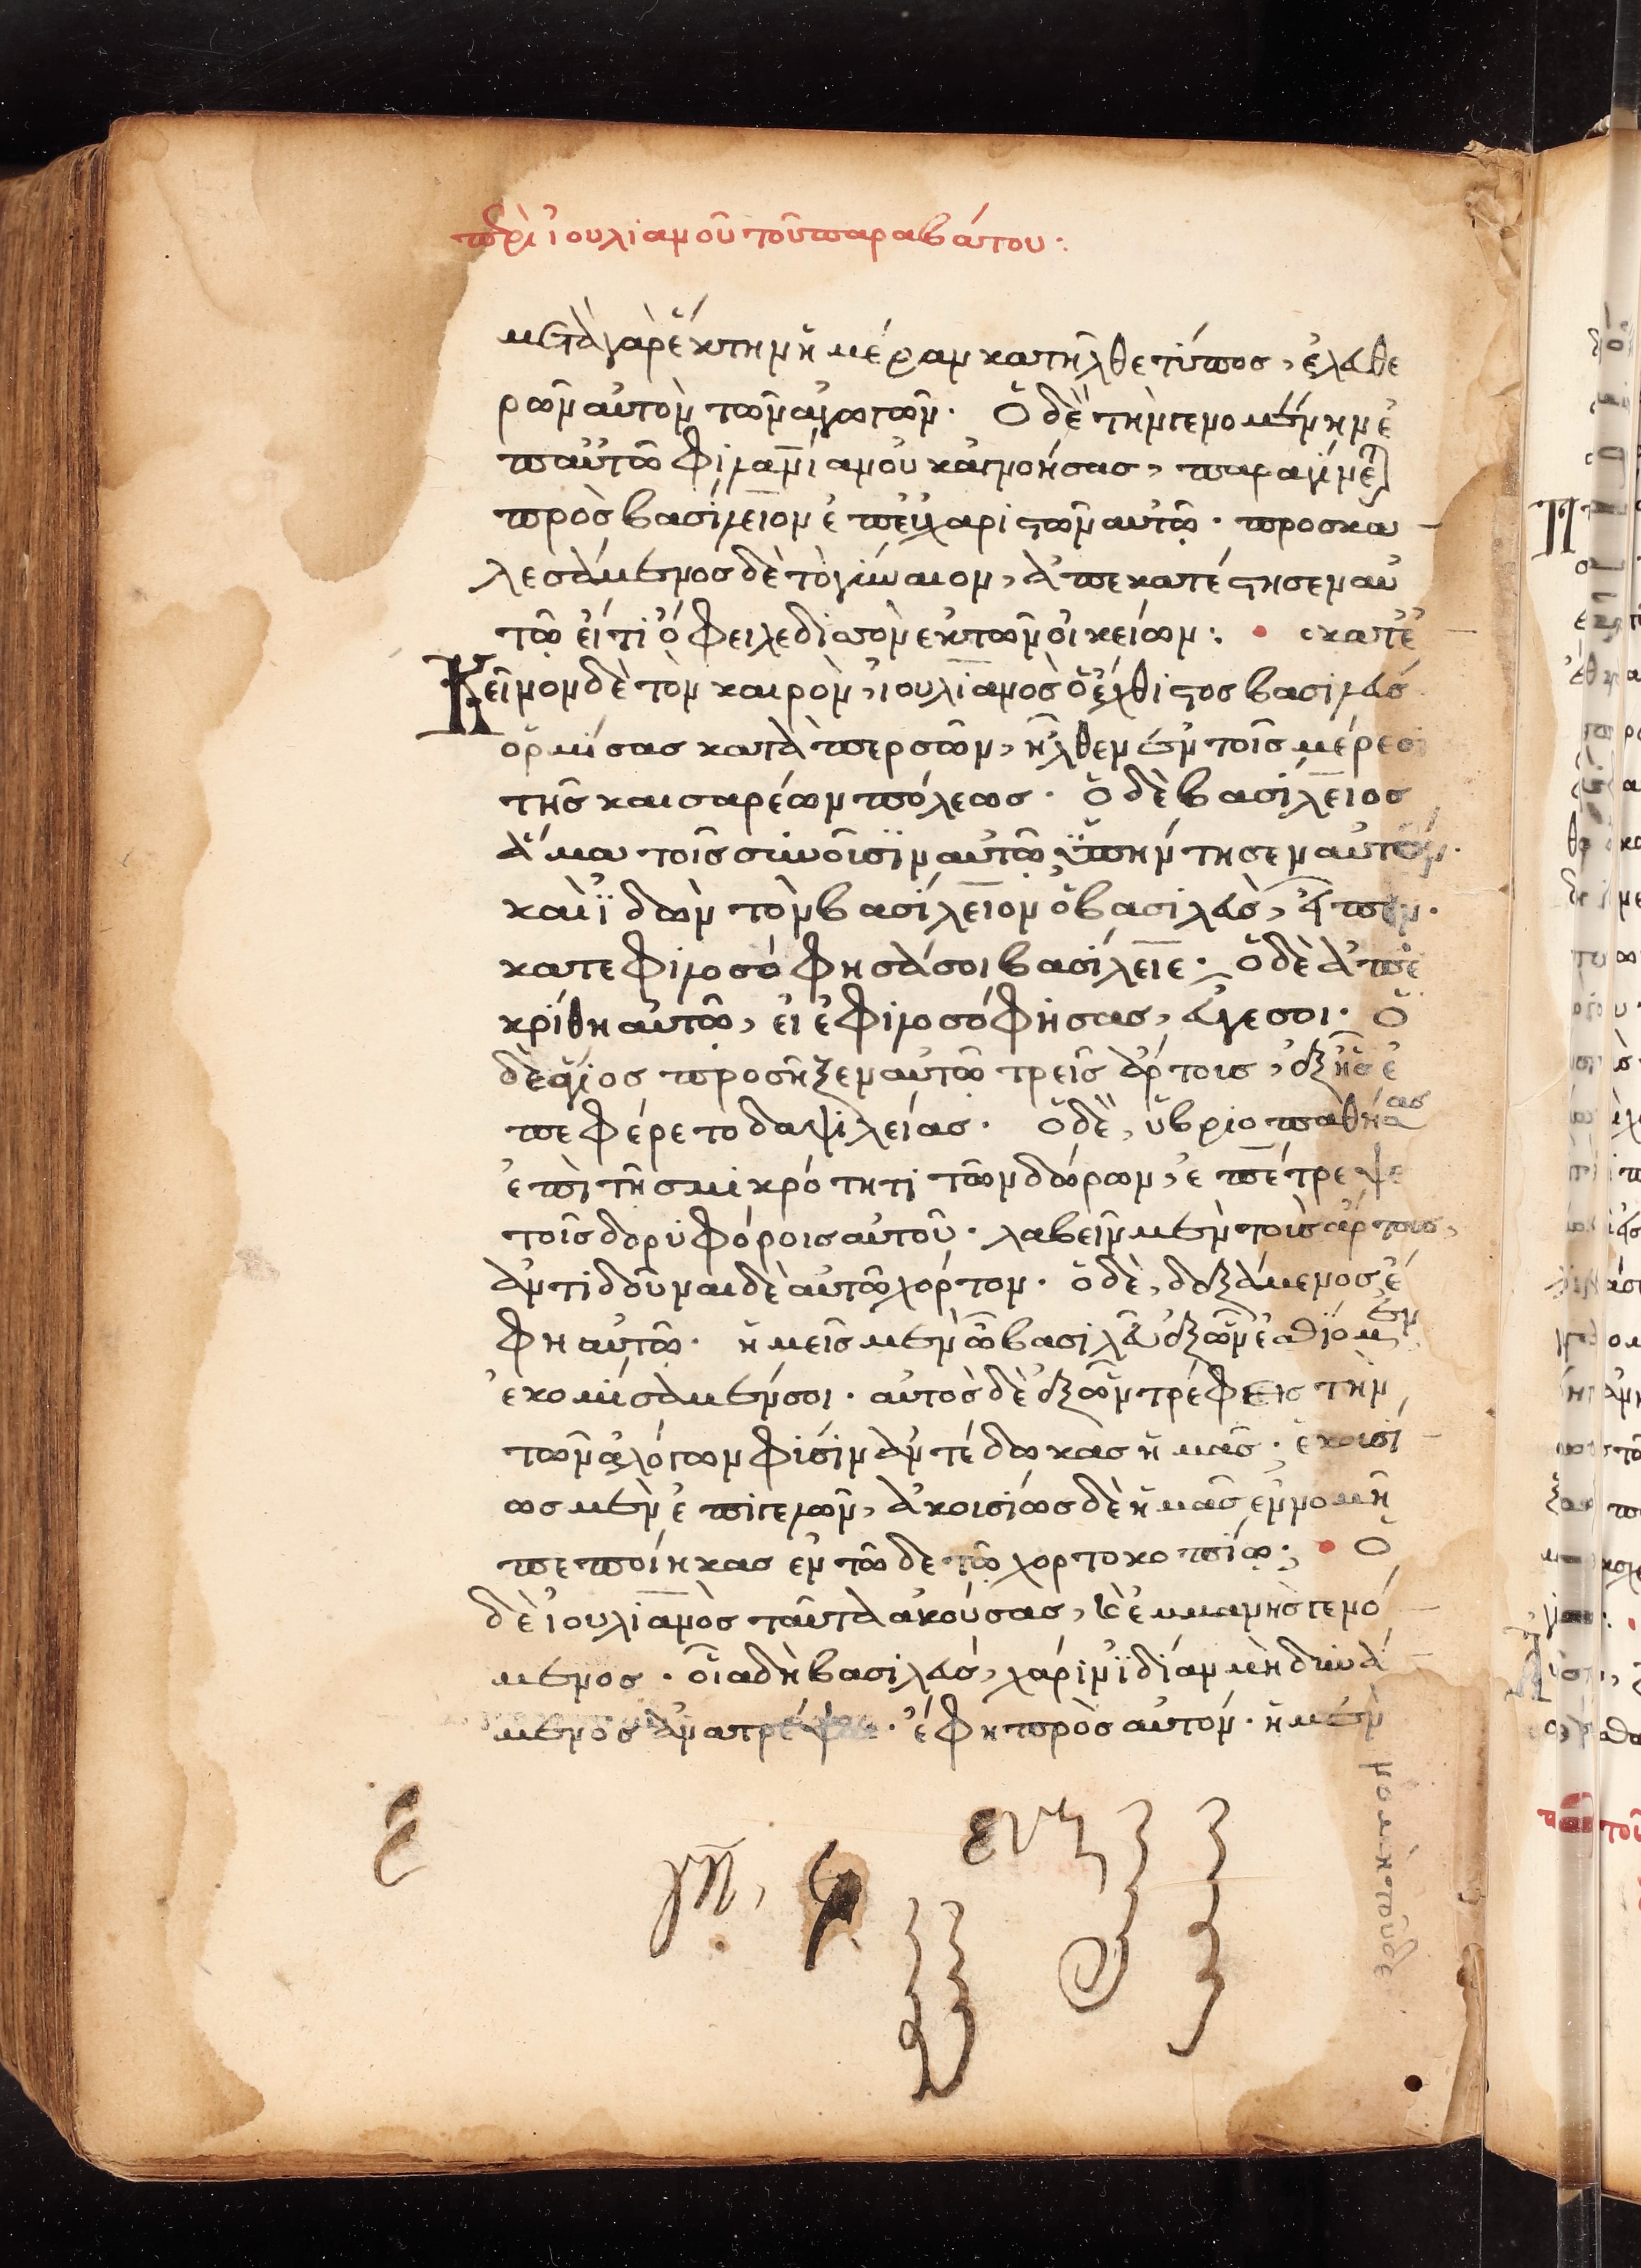 περὶ ἰουλιανοῦ τοῦ παραβάτου:
μετὰ γὰρ ἕκτην ἡμέραν κατῆλθε τύπος, ἐλευθε
ρῶν αὐτὸν τῶν ἀγωγῶν. Ὁ δὲ τὴν γενομένην ἐ
π αὐτῶ φιλανἱαν οὐκ ἀγνοήσας, παραγίνε
πρὸς βασίλειον ἐπευχαριστῶν αὐτῶ. προσκα
λεσάμενος δὲ τὸ γύναιον, ἀπεκατέστησεν αὐ
τῶ εἴ τι ὄφειλε διπλὸν ἐκ τῶν οἰκείων: κατ ἐ
Κεῖνον δὲ τὸν καιρὸν, ἰουλιανὸς ὁ ἔχθιστος βασιλεύς
ὁρμήσας κατὰ περσῶν, ἦλθεν ἐν τοῖς μέρεσι
τῆς καισαρέων πόλεως. Ὁ δὲ βασίλειος
ἅμα τοῖς συνοῦσϊν αὐτῶ ὑπήντησεν αὐτόν.
καὶ ϊδὼν τὸν βασίλειον ὁ βασιλεὺς, εἶπεν.
κατεφιλοσόφησά σοι βασίλειε. Ὁ δὲ ἀπε
κρίθη αὐτῶ, εἰ ἐφιλοσόφησας, εὖγε σοι. Ὁ
δὲ ἅγιος προσῆξεν αὐτῶ τρεῖς ἄρτους, ἐξ ἧς ἐ
πεφέρετο δαψιλείας. Ὁ δὲ, ὑβριοπαθήσας
ἐπὶ τῆ σμικρότητι τῶν δώρων, ἐπέτρεψε
τοῖς δορυφόροις αὐτοῦ. λαβεῖν μὲν τοὺς ἄρτους,
ἀντιδοῦναι δὲ αὐτῶ χόρτον. ὁ δὲ, δεξάμενος ἔ
φη αὐτῶ. ἡμεῖς μὲν ὦ βασιλεῦ ἐξ ὧν ἐσθίομεν,
ἐκομίσαμέν σοι. αὐτὸς δὲ ἐξ ὧν τρέφεις τὴν
τῶν ἀλόγων φύσιν ἀντέδωκας ἡμᾶς. ἑκουσί
ως μὲν ἐπιγελῶν, ἀκουσίως δὲ ἡμᾶς ἐν νομῆ
πεποίηκας ἐν τῶδε τῶ χορτοκοπίω: Ὁ
δὲ ἰουλιανὸς ταῦτα ἀκούσας, καὶ ἐμμανὴς γενό
μενος. οἷα δὴ βασιλεύς, χάριν ϊδίαν μὴ δυνά
μενος ἀνατρέψαι. ἔφη πρὸς αὐτόν. ἡμὲν